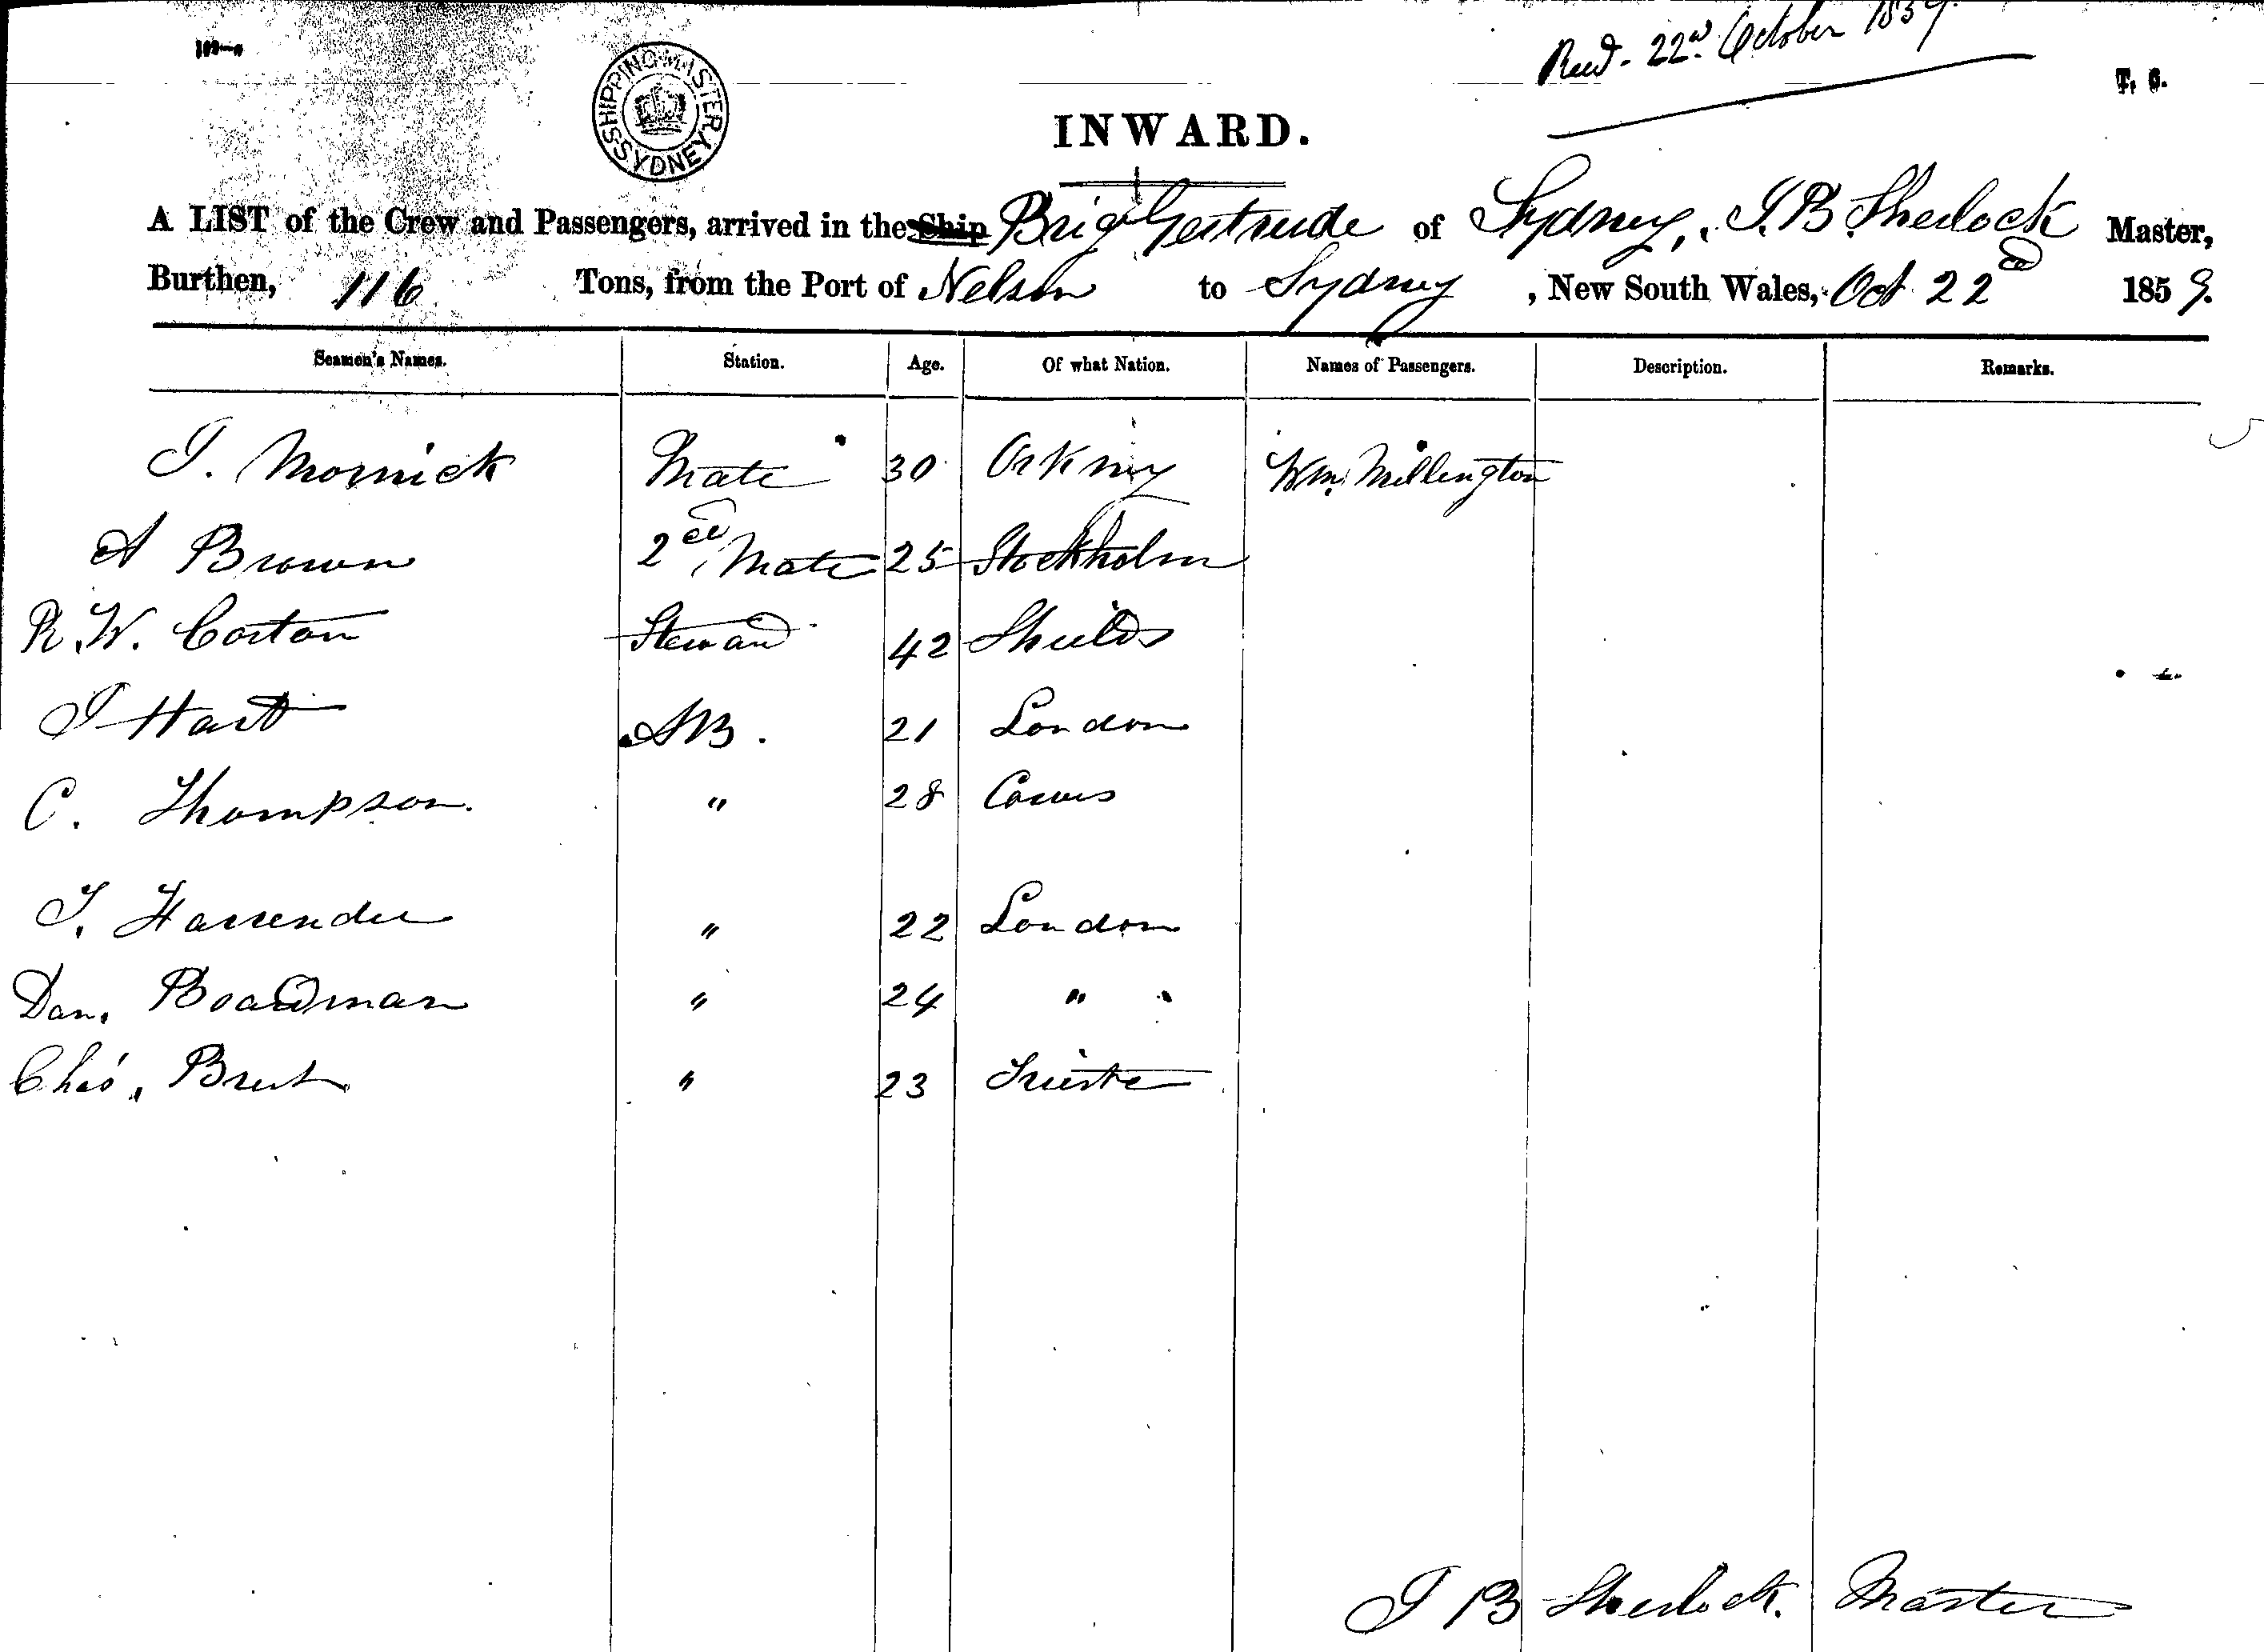 Recd. 22nd October 1859.
T. S.
SHIPPING MASTER. SYDNEY.
INWARD.
A LIST of the Crew and Passengers, arrived in the Ship Brig Gertrude of Sydney, J. B. Sherlock Master,
Burthen, 116 Tons, from the Port of Nelson to Sydney, New South Wales, Oct 22d 1859.
Seamen's Names. Station. Age. Of what Nation. Names of Passengers. Description. Remarks.
J. Mornick Mate 30 Orkney Wm. Millington
A Brown 2nd Mate 25 Stockholm
R. W. Coston Steward 42 Shields
J Hart AB. 21 London
C. Thompson. " 28 Cowes
" 22 London
Dan. Boardman " 24 "
Chas. " 23 Trieste
J B Sherlock. Master